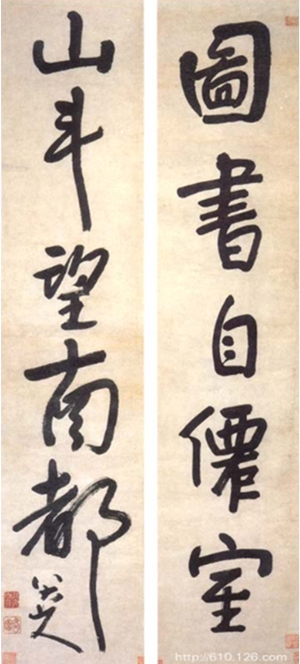 圖書自僊室
山斗望南都
八大
http://610.126.com